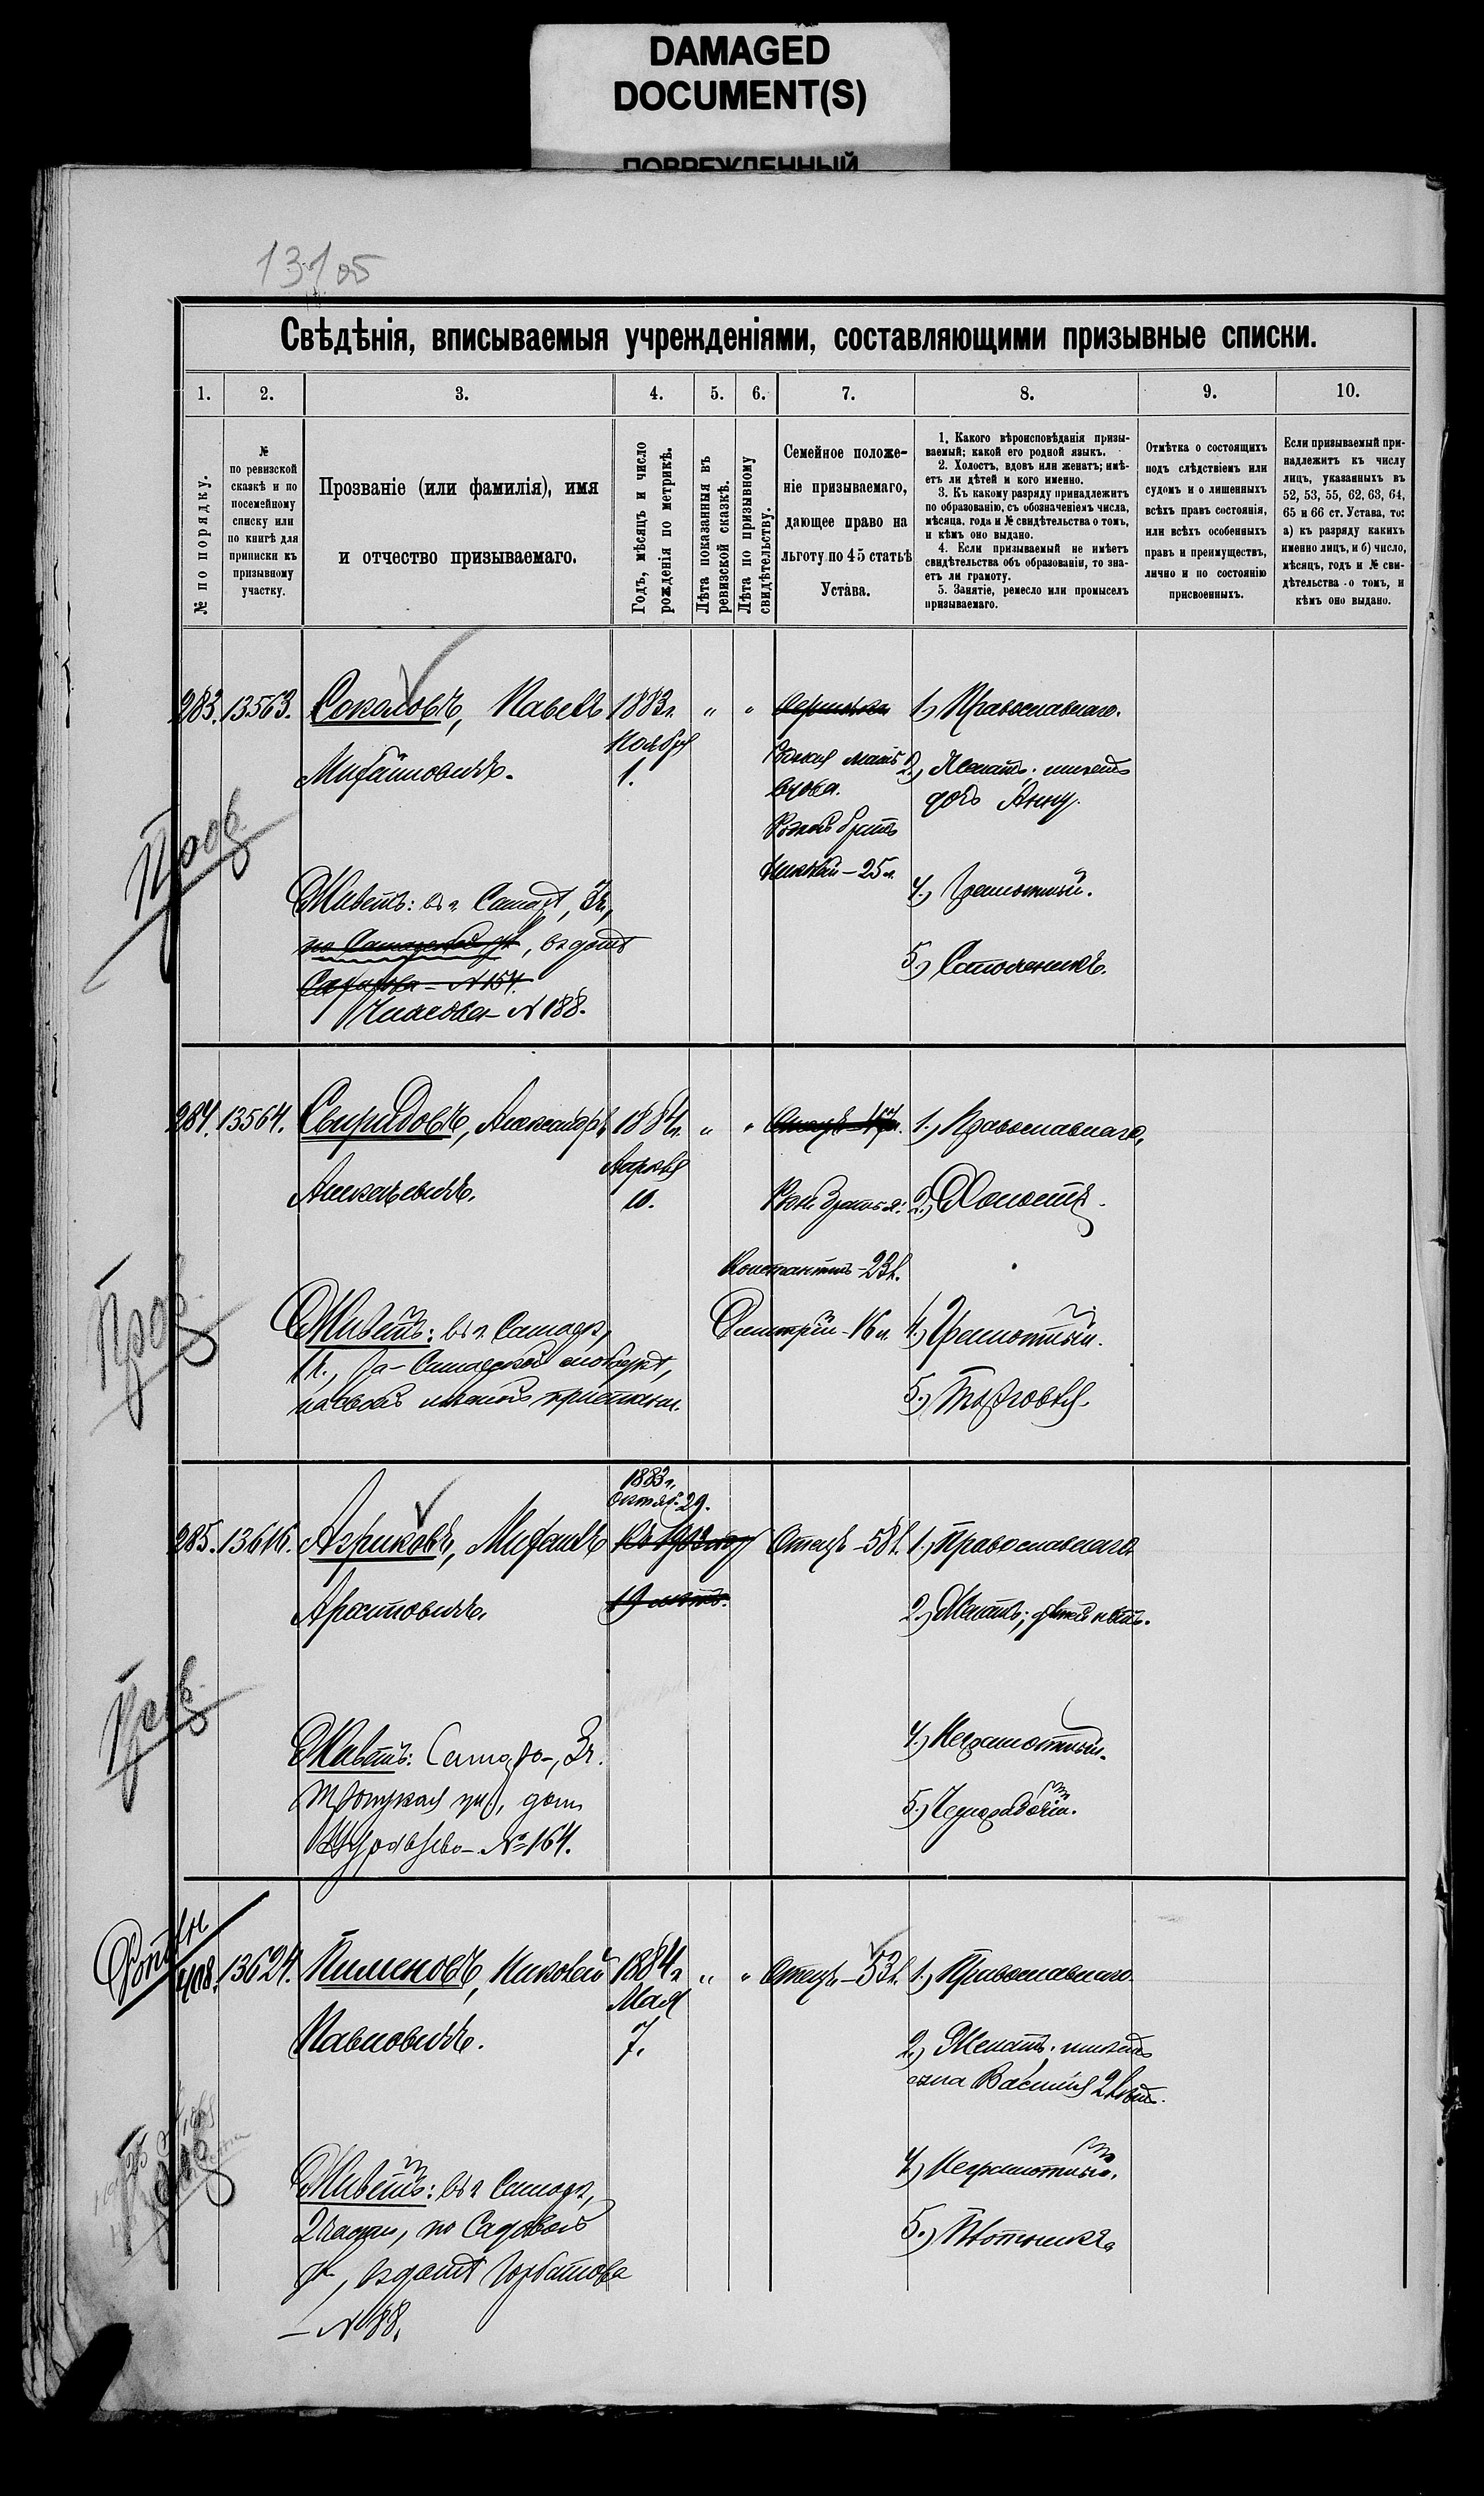 DAMAGED
DOCUMENT(S)
ПОВРЕЖДЕННЫЙ
13/05
Свѣдѣнія, вписываемыя учрежденіями, составляющими призывные списки.
1. 2. 3. 4. 5. 6. 7. 8. 9. 10.
№ по порядку.
№
по ревизской
сказкѣ и по
посемейному
списку или
по книгѣ для
приписки къ
призывному
участку.
Прозваніе (или фамилія), имя
и отчество призываемаго.
Годъ, мѣсяцъ и число
рожденія по метрикѣ.
Лѣта показанныя въ
ревизской сказкѣ.
Лѣта по призывному
свидѣтельству.
Семейное положе-
ніе призываемаго,
дающее право на
льготу по 45 статьѣ
Устава.
1. Какого вѣроисповѣданія призы-
ваемый; какой его родной языкъ.
2. Холостъ, вдовъ или женатъ; имѣ-
етъ ли дѣтей и кого именно.
3. Къ какому разряду принадлежитъ
по образованію, съ обозначеніемъ числа,
мѣсяца, года и № свидѣтельства о томъ,
и кѣмъ оно выдано.
4. Если призываемый не имѣетъ
свидѣтельства объ образованіи, то зна-
етъ ли грамоту.
5. Занятіе, ремесло или промыселъ
призываемаго.
Отмѣтка о состоящихъ
подъ слѣдствіемъ или
судомъ и о лишенныхъ
всѣхъ правъ состоянія,
или всѣхъ особенныхъ
правъ и преимуществъ,
лично и по состоянію
присвоенныхъ.
Если призываемый при-
надлежитъ къ числу
лицъ, указанныхъ въ
52, 53, 55, 62, 63, 64,
65 и 66 ст. Устава, то:
а) къ разряду какихъ
именно лицъ, и б) число,
мѣсяцъ, годъ и № сви-
дѣтельства о томъ, и
кѣмъ оно выдано.
283. 13563. Соколовъ, Павелъ 1883г. " " 1) Православнаго.
Ноября
Михайловичъ. 1.
Родная мать
вдова.
2) Женатъ, имѣетъ
дочь Анну.
Родной братъ
25 л.
Пров
Живетъ: въ г. Самарѣ, 3ч.,
4) Грамотный.
по Самарской ул, въ домѣ
5) Сапожникъ.
№ 154.
№ 188.
284. 13564. Свиридовъ, Александръ 1884г. " " Отецъ 1) Православнаго,
Апрѣля
Алексѣевичъ. 10. Родн. братья: 2) Холостъ.
Константинъ - 23 л.
Димитрій - 16 л. 4) Грамотный.
Пров
Живетъ: въ г. Самарѣ,
1ч., за - слободкѣ,
5) Торговля.
285. 13616. Агриковъ, Михаилъ
1883г.
Октяб. 29.
Къ 1903 году
19 лѣтъ.
Отецъ - 58 л. 1) Православнаго
2) Женатъ; дѣтей нѣтъ.
Пров
Живетъ: Самара, 3ч.
Троицкая ул., домъ
№ 164.
4) Неграмотный.
5) Чернорабочій.
408. 13624. Пименовъ, Николай 1884г. " " Отецъ - 53 л. 1) Православнаго
Мая
Павловичъ. 7.
2) Женатъ, имѣетъ
сына Василія 2 лѣтъ.
Живетъ: въ г. Самарѣ,
4) Неграмотный.
2 части, по Садовой
5) Плотникъ
ул, въ домѣ Горбатова
- № 88.